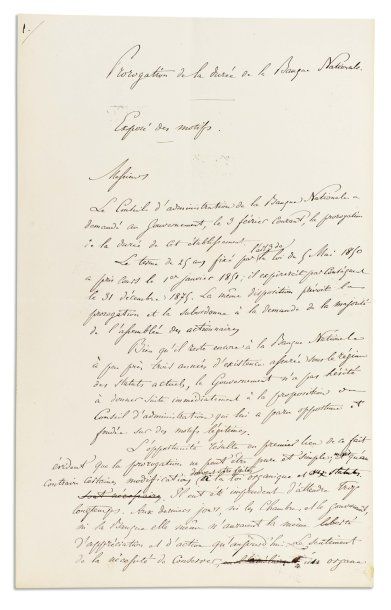 1.
Prorogation de la durée de la Banque Nationale.
Exposé des motifs.
Messieurs
Le Conseil d'administration de la Banque Nationale a
demandé au Gouvernement, le 3 février courant, la prorogation
de la durée de cet établissement.
Le terme de 25 ans fixé par la loi du 5 Mai 1850
a pris cours le 1er janvier 1851; il expirerait par conséquent
le 31 décembre 1875. La même disposition prévoit la
prorogation et la subordonne à la demande de la majorité
de l'assemblée des actionnaires
Bien qu'il reste encore à la Banque Nationale
à peu près trois années d'existence assurée sous le régime
des statuts actuels, le Gouvernement n'a pas hésité
à donner suite immédiatement à la proposition du
Conseil d'administration qui lui a paru opportune et
fondée sur des motifs légitimes.
L'opportunité résulte en premier lieu de ce fait
évident que la prorogation ne peut être pure et simple;
certaines modifications à la loi organique et aux statuts
sont nécessaires. Il eut été imprudent d'attendre trop
longtemps. Aux derniers jours, ni les Chambres, ni le Gouvernement,
ni la Banque elle même n'auraient la même liberté
d'appréciation et d'action qu'aujourd'hui. Le sentiment
de la nécessité de conserver, organe